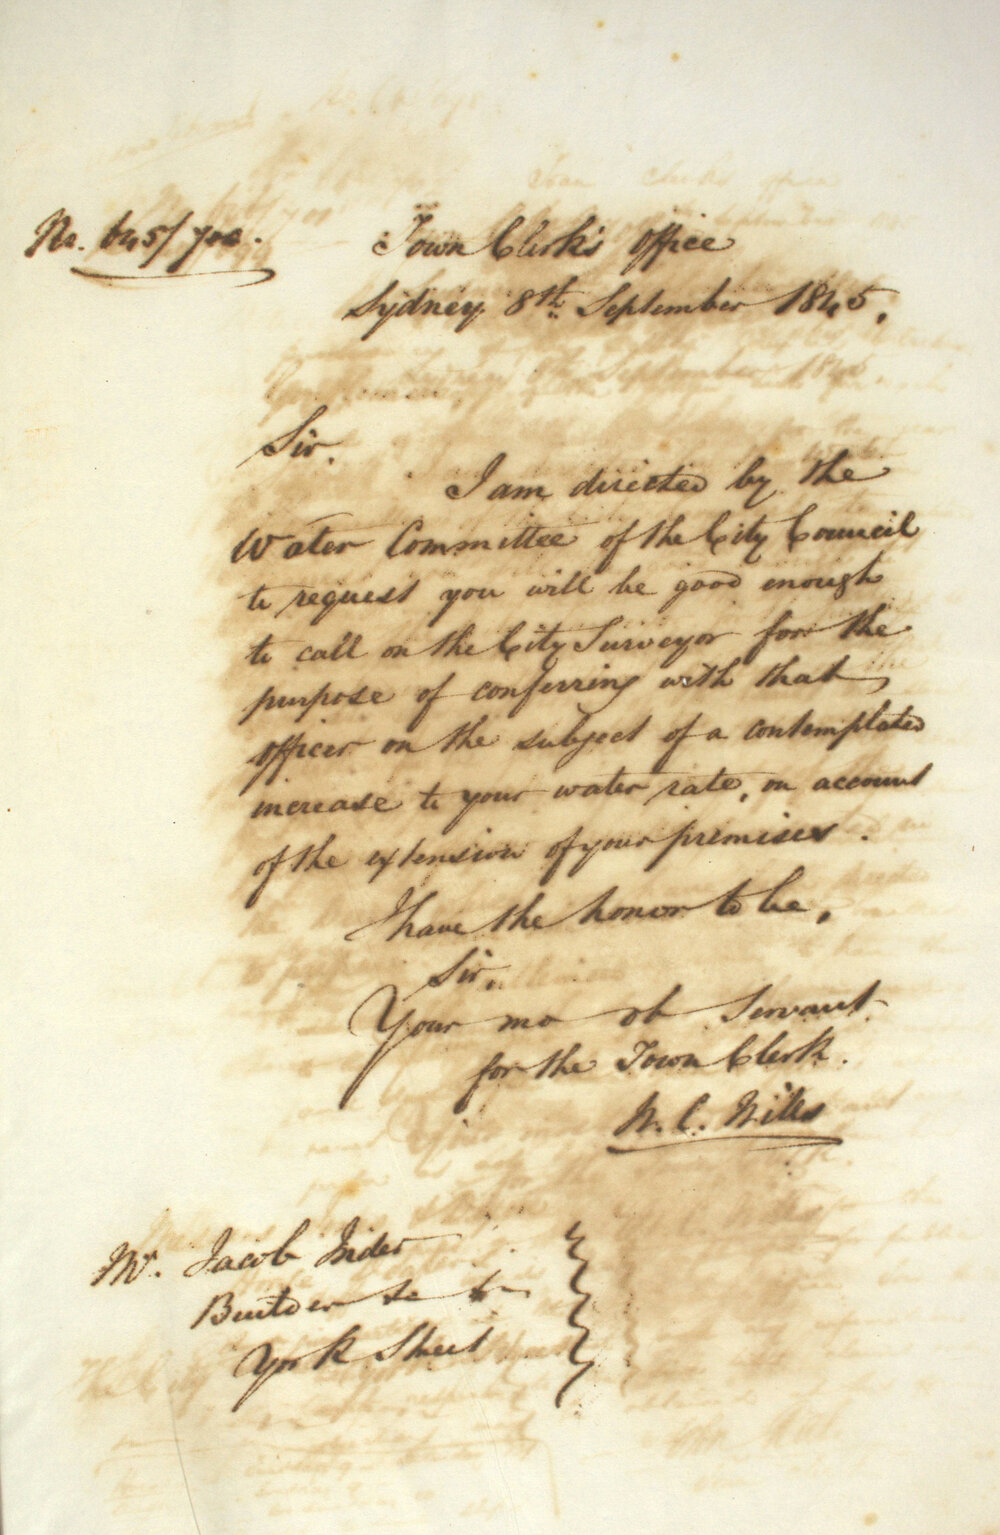 No. 645/
Town Clerk's Office
Sydney 8th September 1845.
Sir.
I am directed by the
Water Committee of the City Council
to request you will be good enough
to call on the City Surveyor for the
purpose of conferring with that
officer on the subject of a contemplated
increase to your water rate, on account
of the extension of your premises.
I have the honor to be,
Sir,
Your mo ob Servant
for the Town Clerk.
W. C. Wills
Mr. Jacob Inder
Builder &c &c
York Street